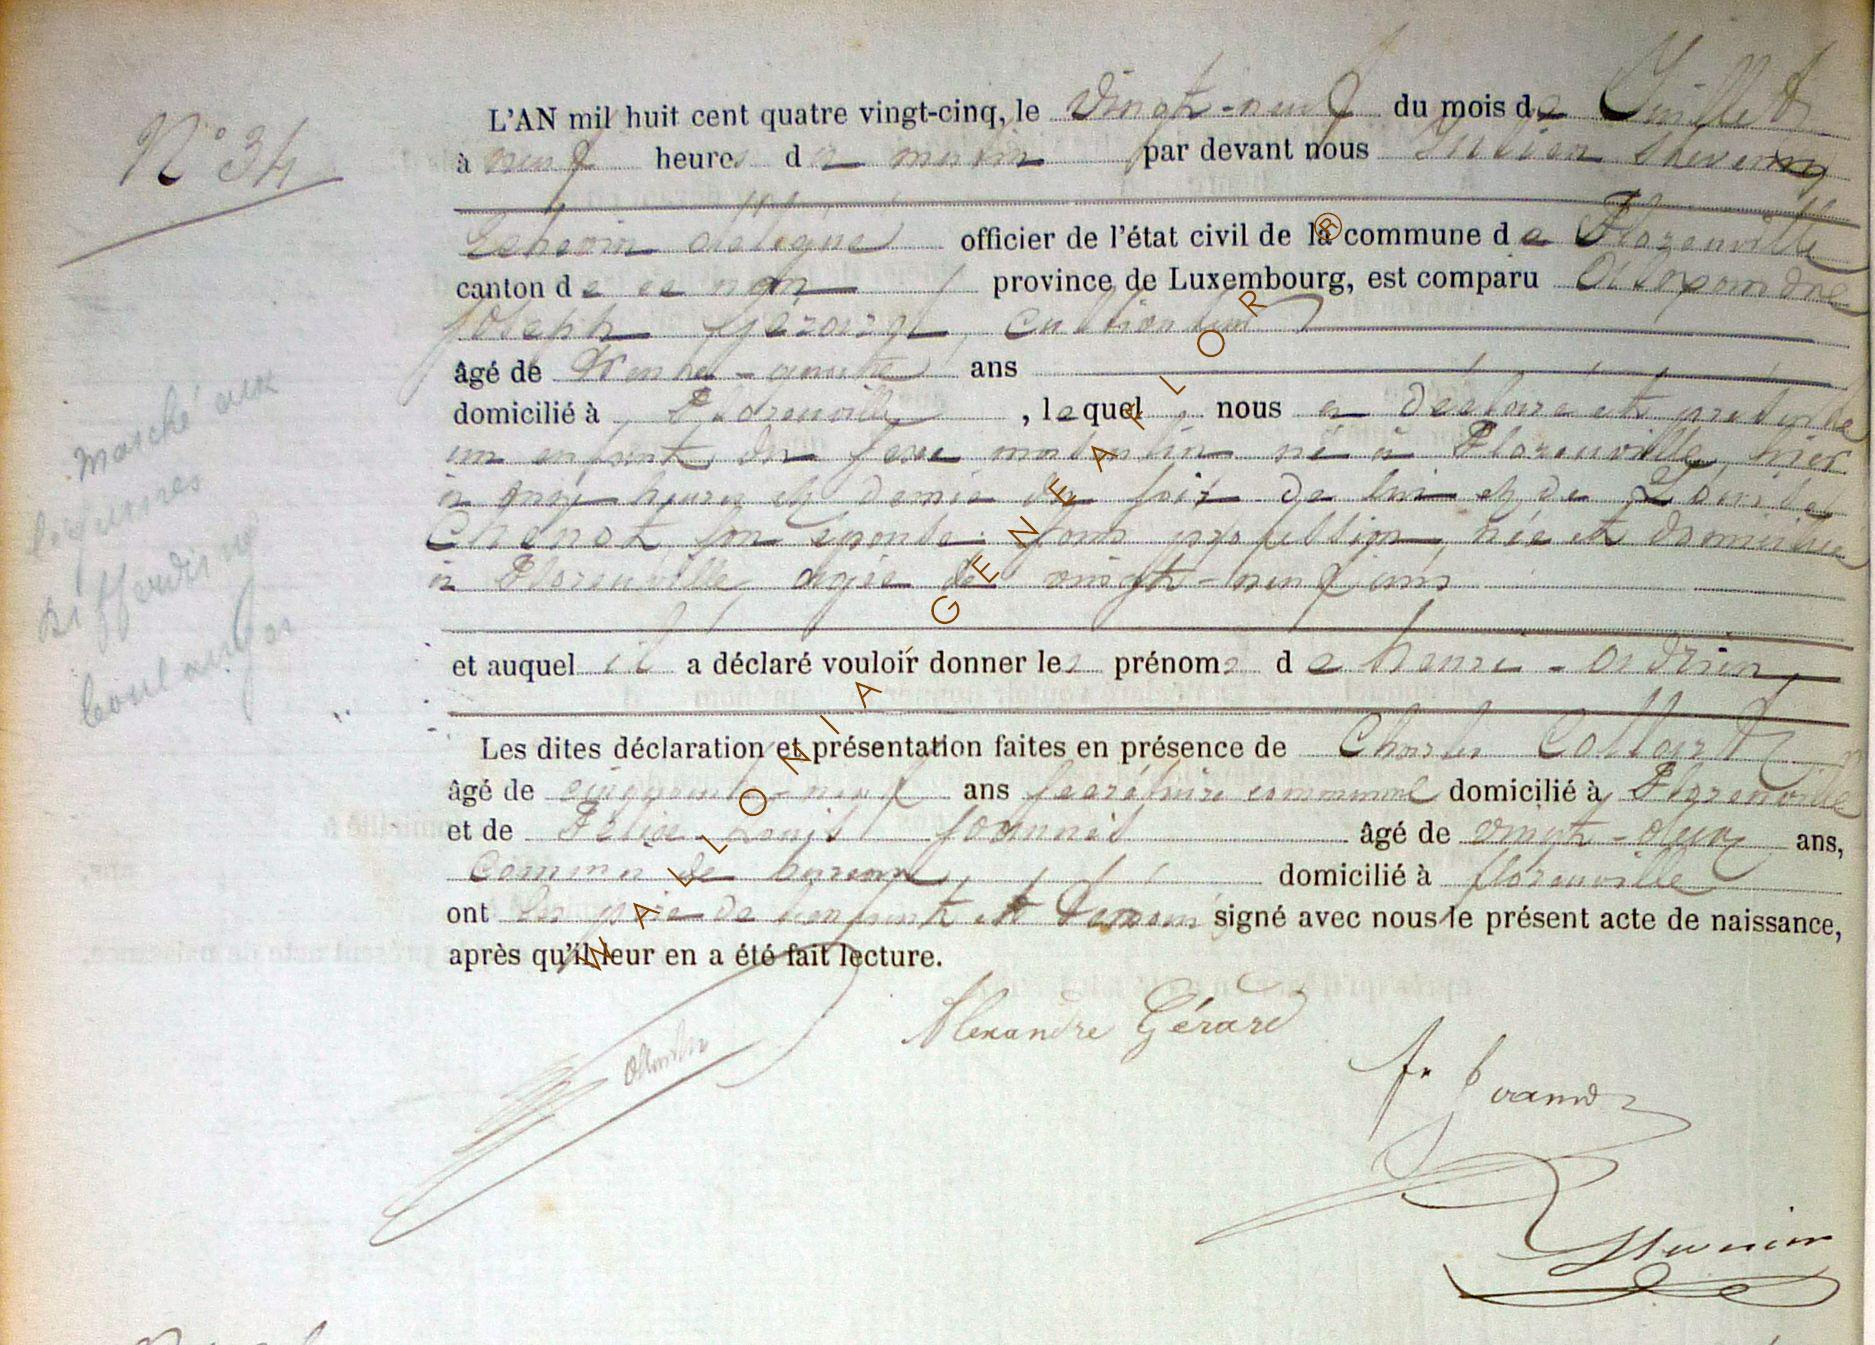 N° 34
L'AN mil huit cent quatre vingt-cinq, le vingt-neuf du mois de Juillet
à neuf heures du matin par devant nous
Echevin délégué officier de l'état civil de la commune de Florenville
canton de province de Luxembourg, est comparu Alexandre
Joseph Gérard cultivateur
âgé de trente-quatre ans
domicilié à Florenville, lequel nous a déclaré et présenté
un enfant du sexe masculin né à Florenville, hier
à onze heures et demie du soir de lui et de Louise
Chenot, son épouse sans profession, née et domiciliée
à Florenville, agée de vingt-neuf ans
et auquel il a déclaré vouloir donner les prénoms de henri-adrien
Les dites déclaration et présentation faites en présence de Charles Collart
âgé de cinquante-neuf ans secrétaire communal domicilié à Florenville
et de Félix Louis âgé de vingt-deux ans,
Commis de bureau domicilié à florenville
ont les père de l'enfant et témoins signé avec nous le présent acte de naissance,
après qu'il leur en a été fait lecture.
Alexandre Gérard
marché aux
légumes
Differding
boulanger
WALLONIA GENEAFLOR ®